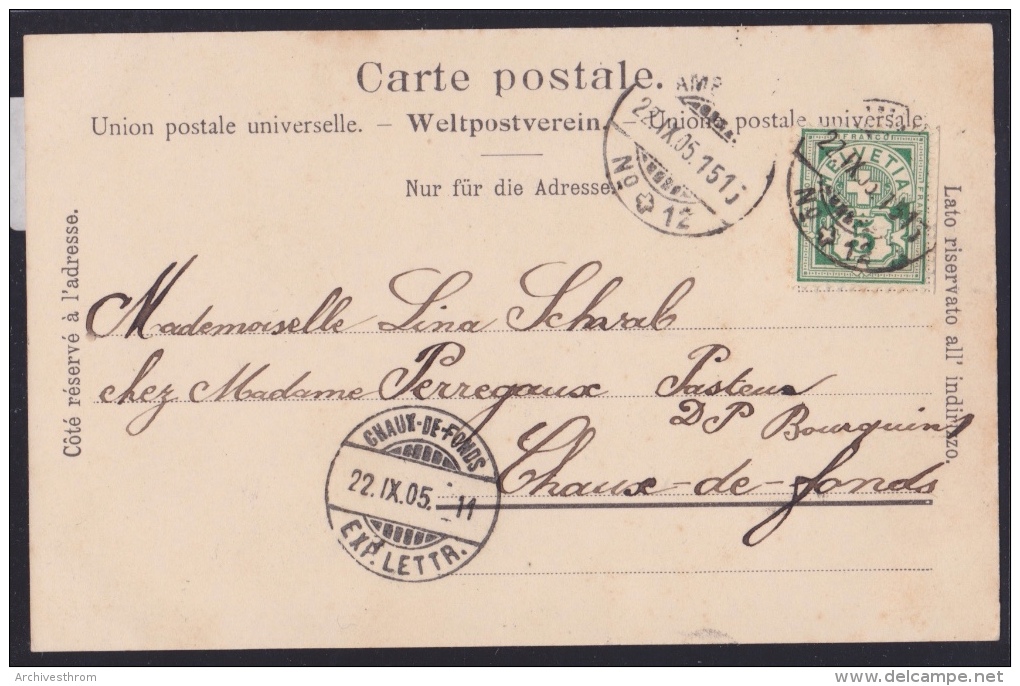 Carte postale.
Union postale universelle. — Weltpostverein. — Unione postale universale.
Nur für die Adresse.
Côté réservé à l'adresse.
Lato riservato all' indirizzo.
AMB
22.IX.05.
No 12
22.IX.05
No 12
FRANCO
HELVETIA
5
Mademoiselle Lina Schwab
chez Madame Perregaux Pasteur
Bourquin
Chaux-de-fonds
CHAUX-DE-FONDS
22.IX.05. — 11
EXP. LETTR.
Archivesthrom
delcampe.net